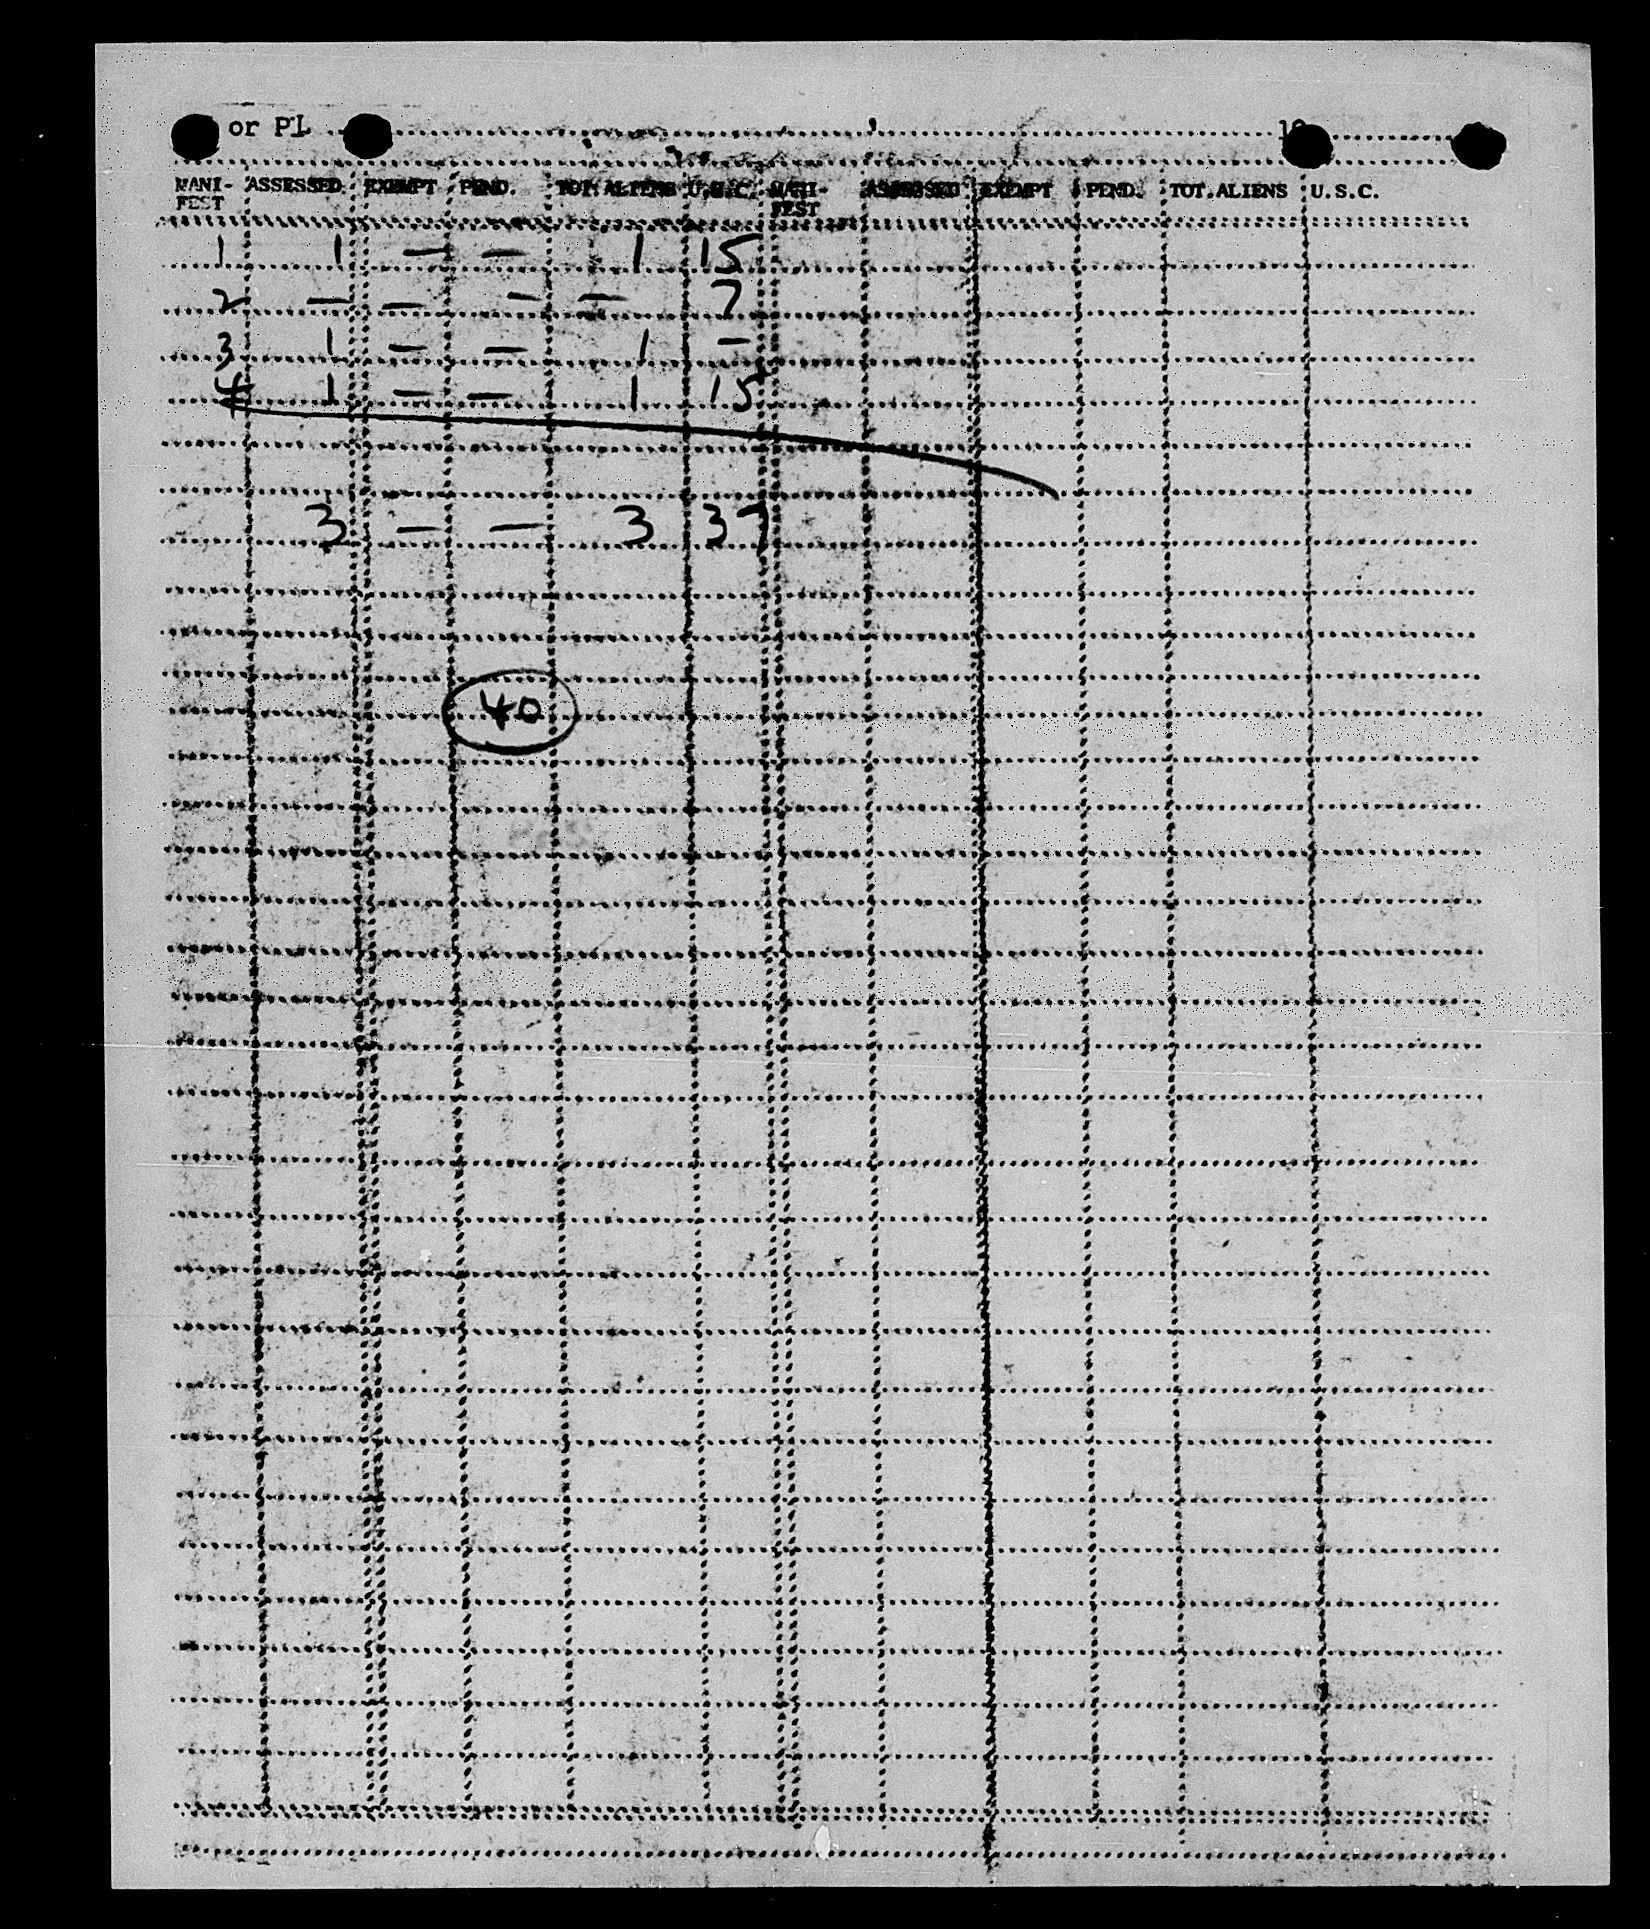 or PL 19
MANI- ASSESSED EXEMPT PEND. TOT. ALIENS U.S.C. MANI- ASSESSED EXEMPT PEND. TOT.ALIENS U.S.C.
FEST FEST
1 1 — — 1 15
2 — — — — 7
3 1 — — 1 —
4 1 — — 1 15
3 — — 3 37
40